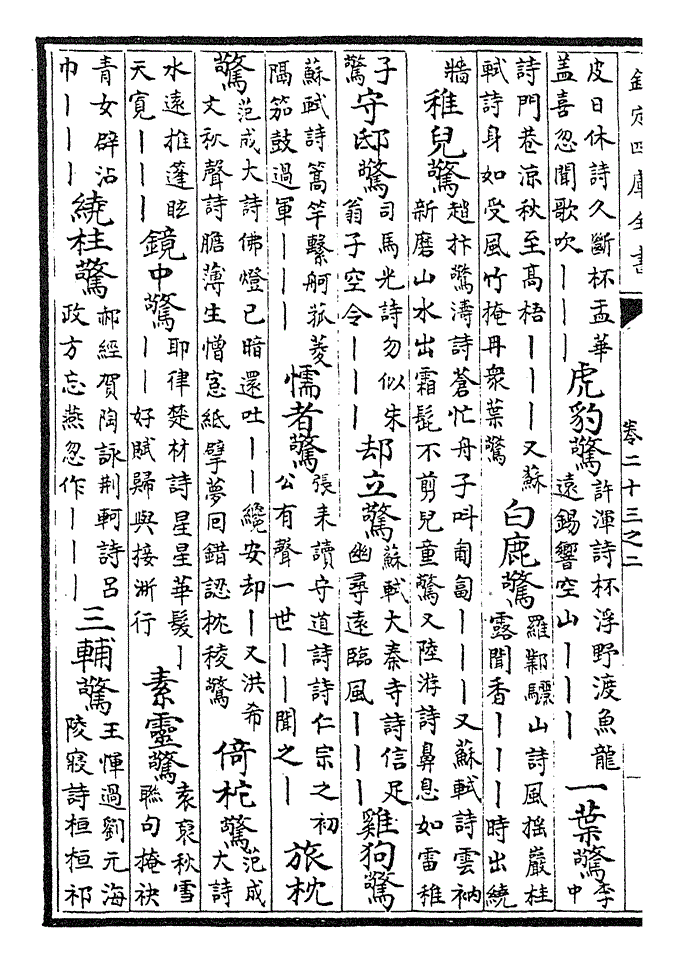 欽定四庫全書
卷二十三之二
皮日休詩久斷杯盂華
蓋喜忽聞歌吹｜｜｜
虎豹驚
許渾詩杯浮野渡魚龍
遠錫響空山｜｜｜
一葉驚
李
中
詩門巷凉秋至高梧｜｜｜又蘇
軾詩身如受風竹掩冉衆葉驚
白鹿驚
羅鄴驪山詩風揺巖桂
露聞香｜｜｜時出繞
牆
稚兒驚
趙抃驚濤詩蒼忙舟子叫匍匐｜｜｜｜又蘇軾詩雲衲
新磨山水出霜髭不剪兒童驚又陸游詩鼻息如雷稚
子
驚
守邸驚
司馬光詩勿似朱
翁子空令｜｜｜
却立驚
蘇軾大秦寺詩信足
幽尋遠臨風｜｜｜
雞狗驚
蘇軾詩篙竿繫舸菰茭
隔笳鼓過軍｜｜｜
懦者驚
張耒讀守道詩詩仁宗之初
公有聲一世｜｜聞之｜
旅枕
驚
范成大詩佛燈已暗還吐｜｜纔安却｜又洪希
文秋聲詩膽薄生憎窓紙擘夢回錯認枕稜驚
倚柁驚
范成
大詩
水遠推蓬眩
天寛｜｜｜
鏡中驚
耶律楚材詩星星華髮｜
｜｜好賦歸與接淅行
素靈驚
袁裒秋雪
聯句掩袂
青女辟沾
巾｜｜｜
繞柱驚
郝經賀陶詠荆軻詩吕
政方忘燕忽作｜｜｜
三輔驚
王惲過劉元海
陵寢詩桓桓祁